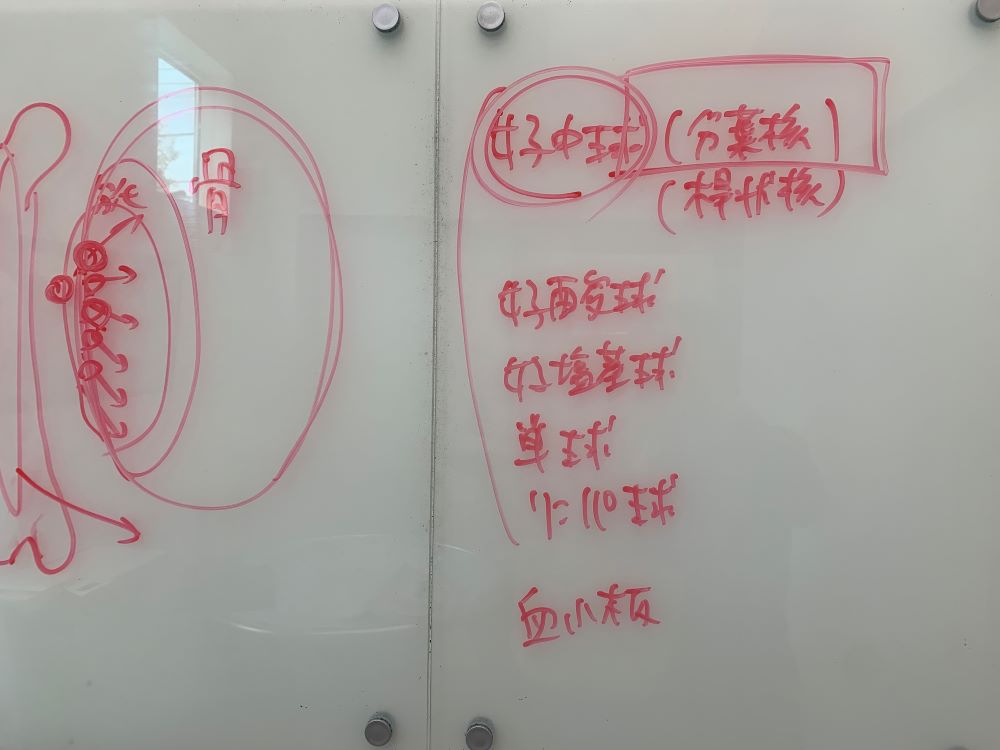 骨
好中球（分葉核）
（桿状核）
好酸球
好塩基球
単球
リンパ球
血小板